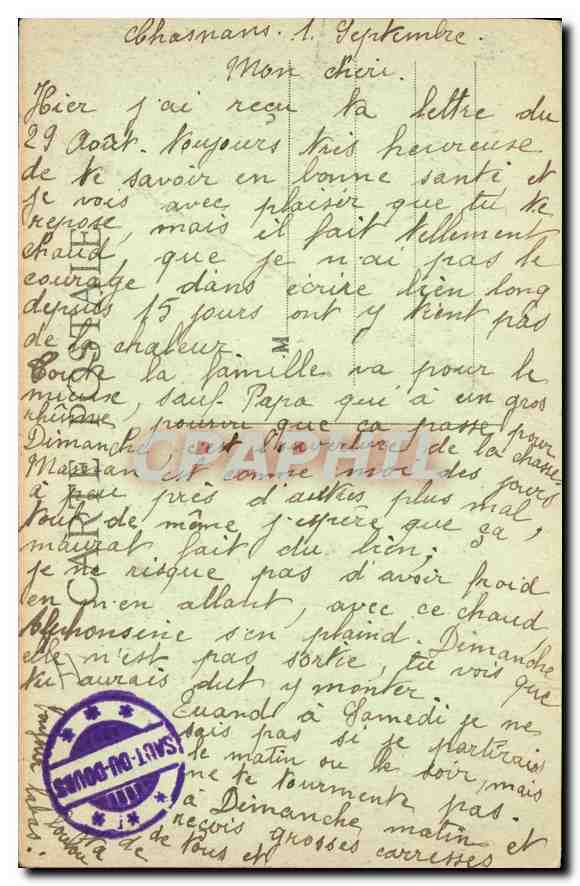 Chasnans. 1. Septembre.
Mon chéri.
Hier j'ai reçu ta lettre du
29 Août. toujours très heureuse
de te savoir en bonne santé et
je vois avec plaisir que tu te
repose, mais il fait tellement
chaud, que je n'ai pas le
courage, dans écrire bien long
depuis 15 jours ont y tient pas
de la chaleur.
Toute la famille va pour le
mieux, sauf Papa qui à un gros
rhûme, pourvu que ça passe pour
Dimanche c'est l'ouverture de la chasse.
Maman est comme moi des jours
à peu près d'autres plus mal,
tout de même j'espère que ça
m'aurat fait du bien;
je ne risque pas d'avoir froid
en m'en allant, avec ce chaud,
Alphonsine s'en plaind. Dimanche
elle n'est pas sortie, tu vois que
tu aurais dut y monter.
Quand à Samedi je ne
sais pas si je partirais
le matin ou le soir, mais
ne te tourmente pas.
à Dimanche matin et
reçois grosses carresses
de tous et
de ta
CARTE POSTALE
M
SAUT-DU-DOUBS
CPAPHIL